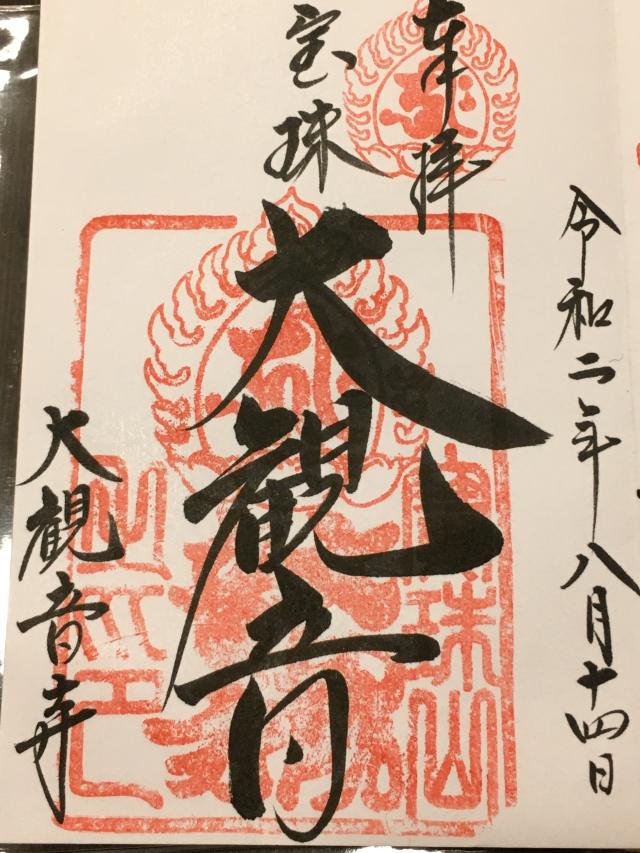 令和二年八月十四日
奉拝
宝珠
大観音
大観音寺